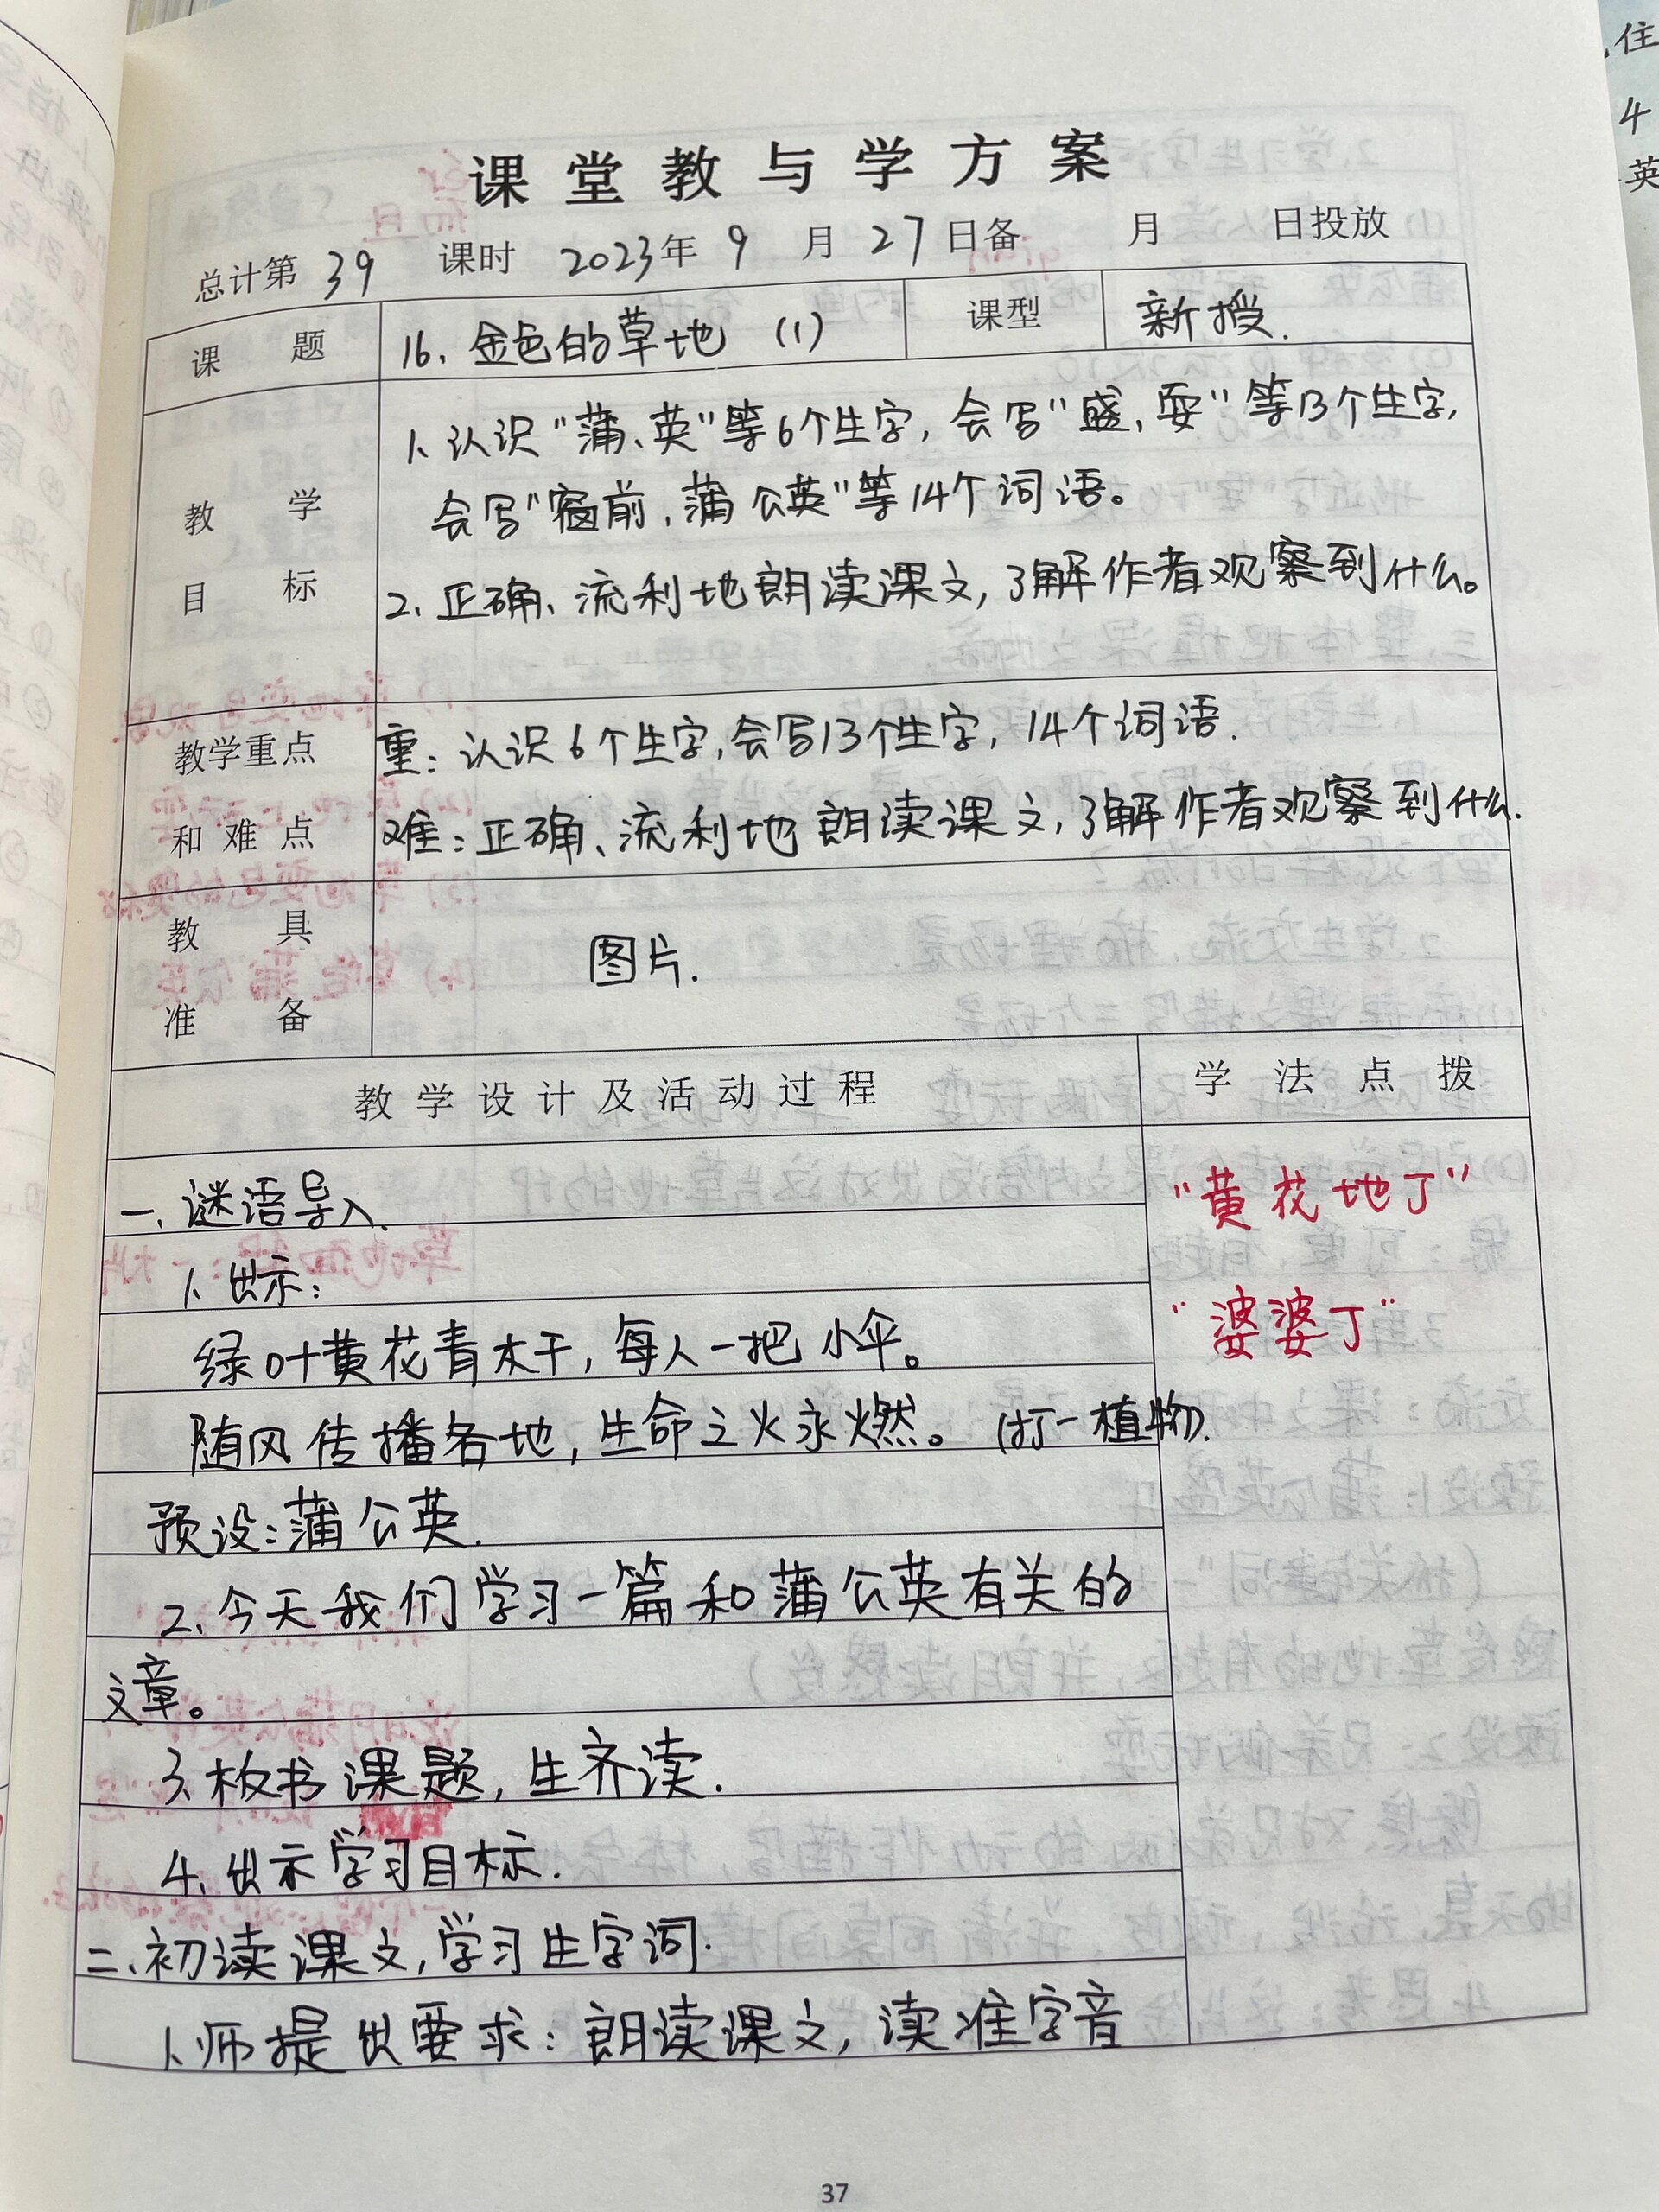 课堂教与学方案
总计第 39 课时 2023年 9 月 27 日备 月 日投放
课题 16、金色的草地 (1) 课型 新授.
教学目标
1、认识"蒲、英"等6个生字, 会写"盛, 耍"等13个生字,
会写"窗前, 蒲公英"等14个词语。
2、正确、流利地朗读课文, 了解作者观察到什么。
教学重点和难点
重: 认识6个生字, 会写13个生字, 14个词语.
难: 正确、流利地朗读课文, 了解作者观察到什么.
教具准备 图片.
教学设计及活动过程 学法点拨
一、谜语导入.
1、出示:
绿叶黄花青木干, 每人一把小伞。
随风传播各地, 生命之火永燃。 (打一植物).
预设: 蒲公英.
2、今天我们学习一篇和蒲公英有关的
文章。
3、板书课题, 生齐读.
4、出示学习目标.
二、初读课文, 学习生字词.
1、师提出要求: 朗读课文, 读准字音
"黄花地丁"
"婆婆丁"
37
住
4
英